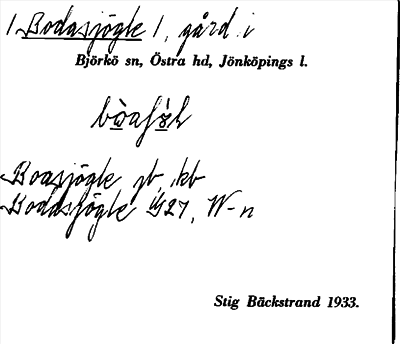 / Bodasjögle /, gård i
Björkö sn, Östra hd, Jönköpings l.
Boasjögle jb, kb
Bodasjögle G27, W-n
Stig Bäckstrand 1933.